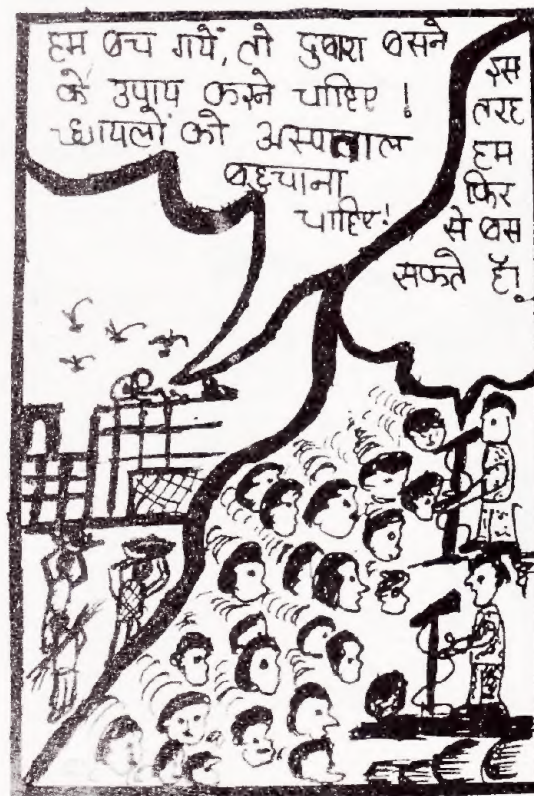 हम बच गयें, तो दुबारा बसने
के उपाय करने चाहिए!
घायलों को अस्पताल
बहचाना
चाहिए!
इस
तरह
हम
फिर
से बस
सकते हैं!